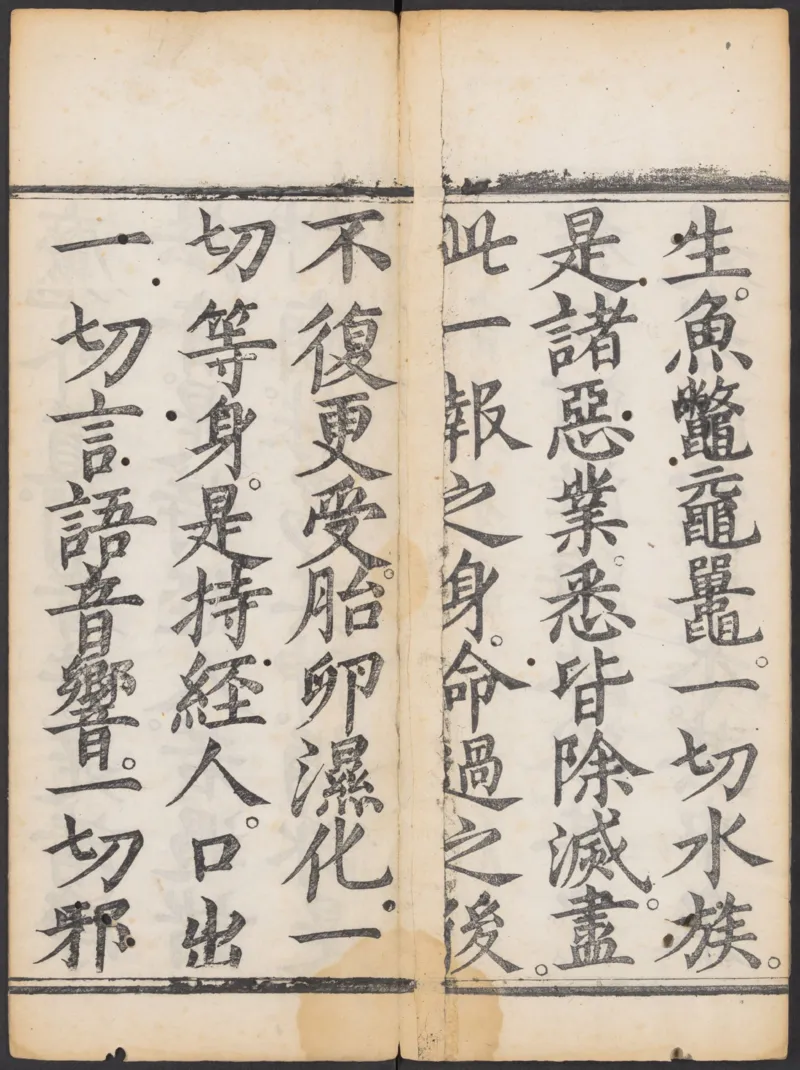 生。魚鼈黿鼉。一切水族。
是諸惡業。悉皆除滅。盡
此一報之身。命過之後。
不復更受。胎卵濕化一
切等身。是持経人。口出
一切言語音響。一切邪